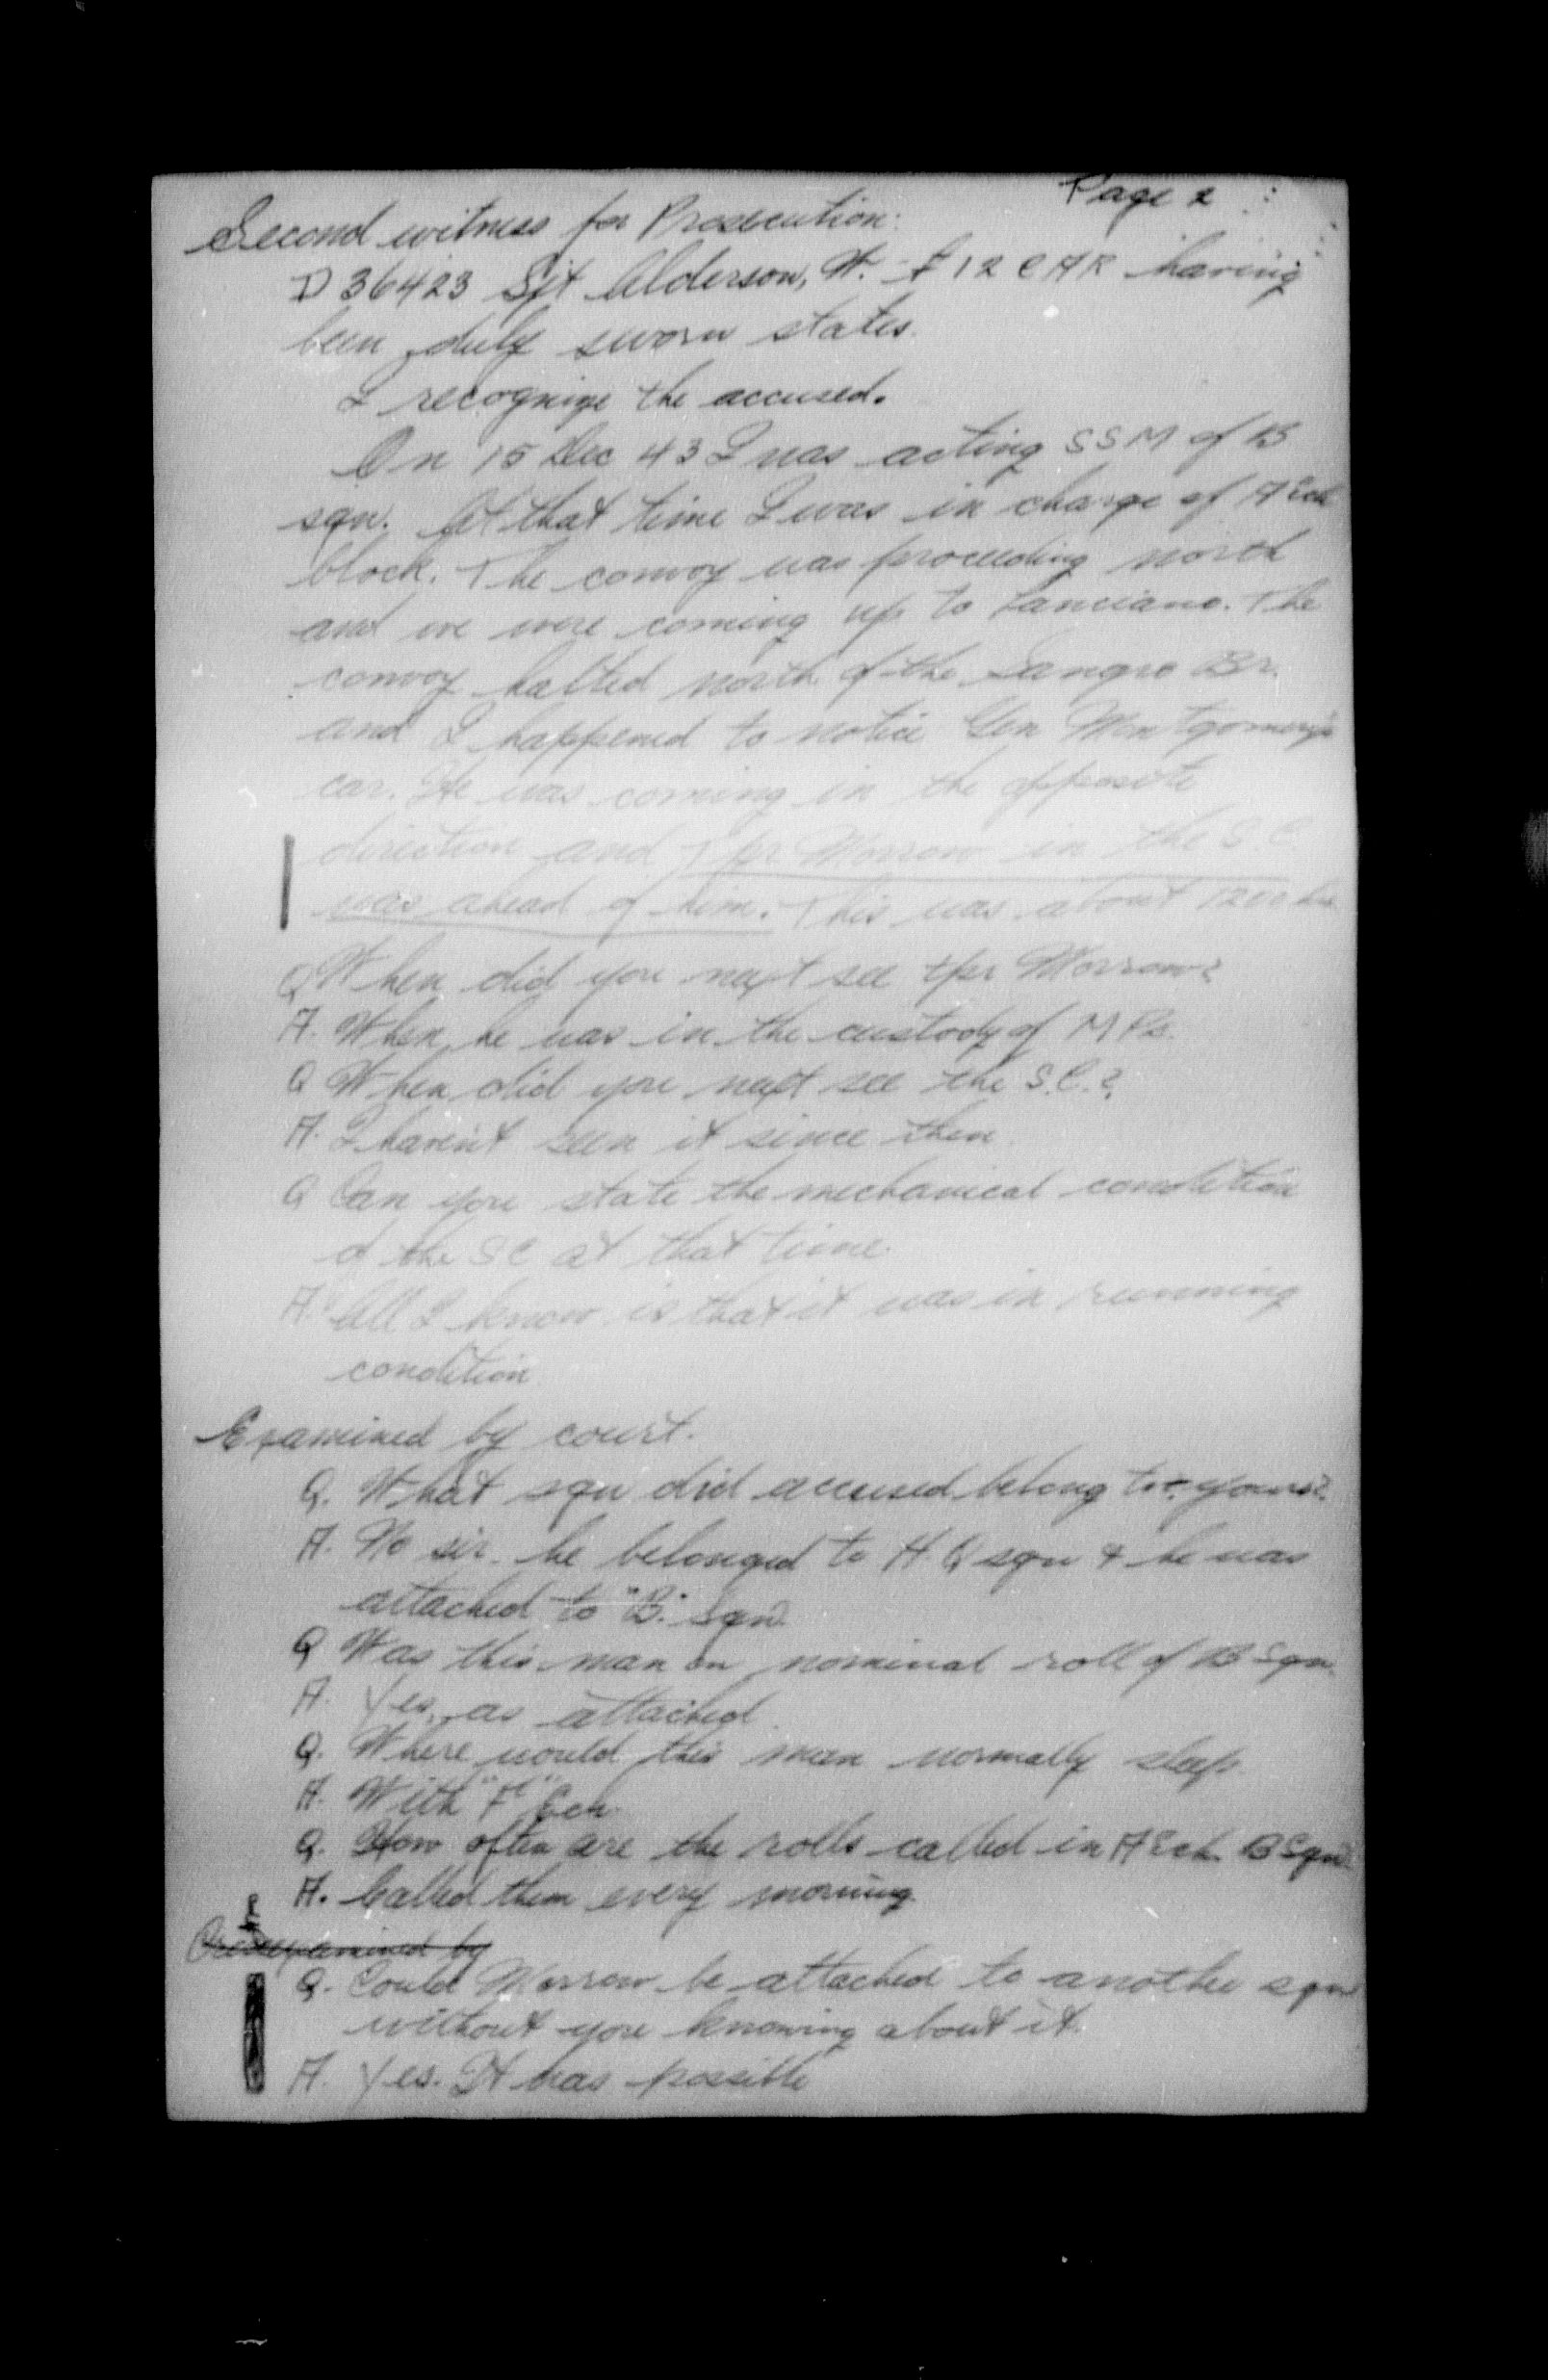 Page 2
Second witness for Prosecution:
D 36423 Sjt Alderson, W. 12 CAR having
been duly sworn states.
I recognize the accused.
On 15 Dec 43 I was acting SSM of B
sqn. At that time I was in charge of A Ech
block. The convoy was proceeding north
and we were coming up to Lanciano. The
convoy halted north of the Sangro Br.
and I happened to notice Gen Montgomery's
car. He was coming in the opposite
direction and Tpr Morrow in the S.C.
was ahead of him. This was about 1200 hrs
Q When did you next see tpr Morrow?
A. When he was in the custody of M Ps.
Q When did you next see the S.C.?
A. I haven't seen it since then.
Q Can you state the mechanical condition
of the SC at that time.
A. All I know is that it was in running
condition.
Examined by court.
Q. What sqn did accused belong to: yours?
A. No sir. he belonged to H.Q sqn & he was
attached to "B" Sqn.
Q Was this man on nominal roll of B Sqn.
A. Yes, as attached.
Q. Where would this man normally sleep
A. With "F" Ech.
Q. How often are the rolls called in A Ech. B Sqn.
A. Called them every morning.
Cross examined by
Q. Could Morrow be attached to another sqn
without you knowing about it.
A. Yes. It was possible